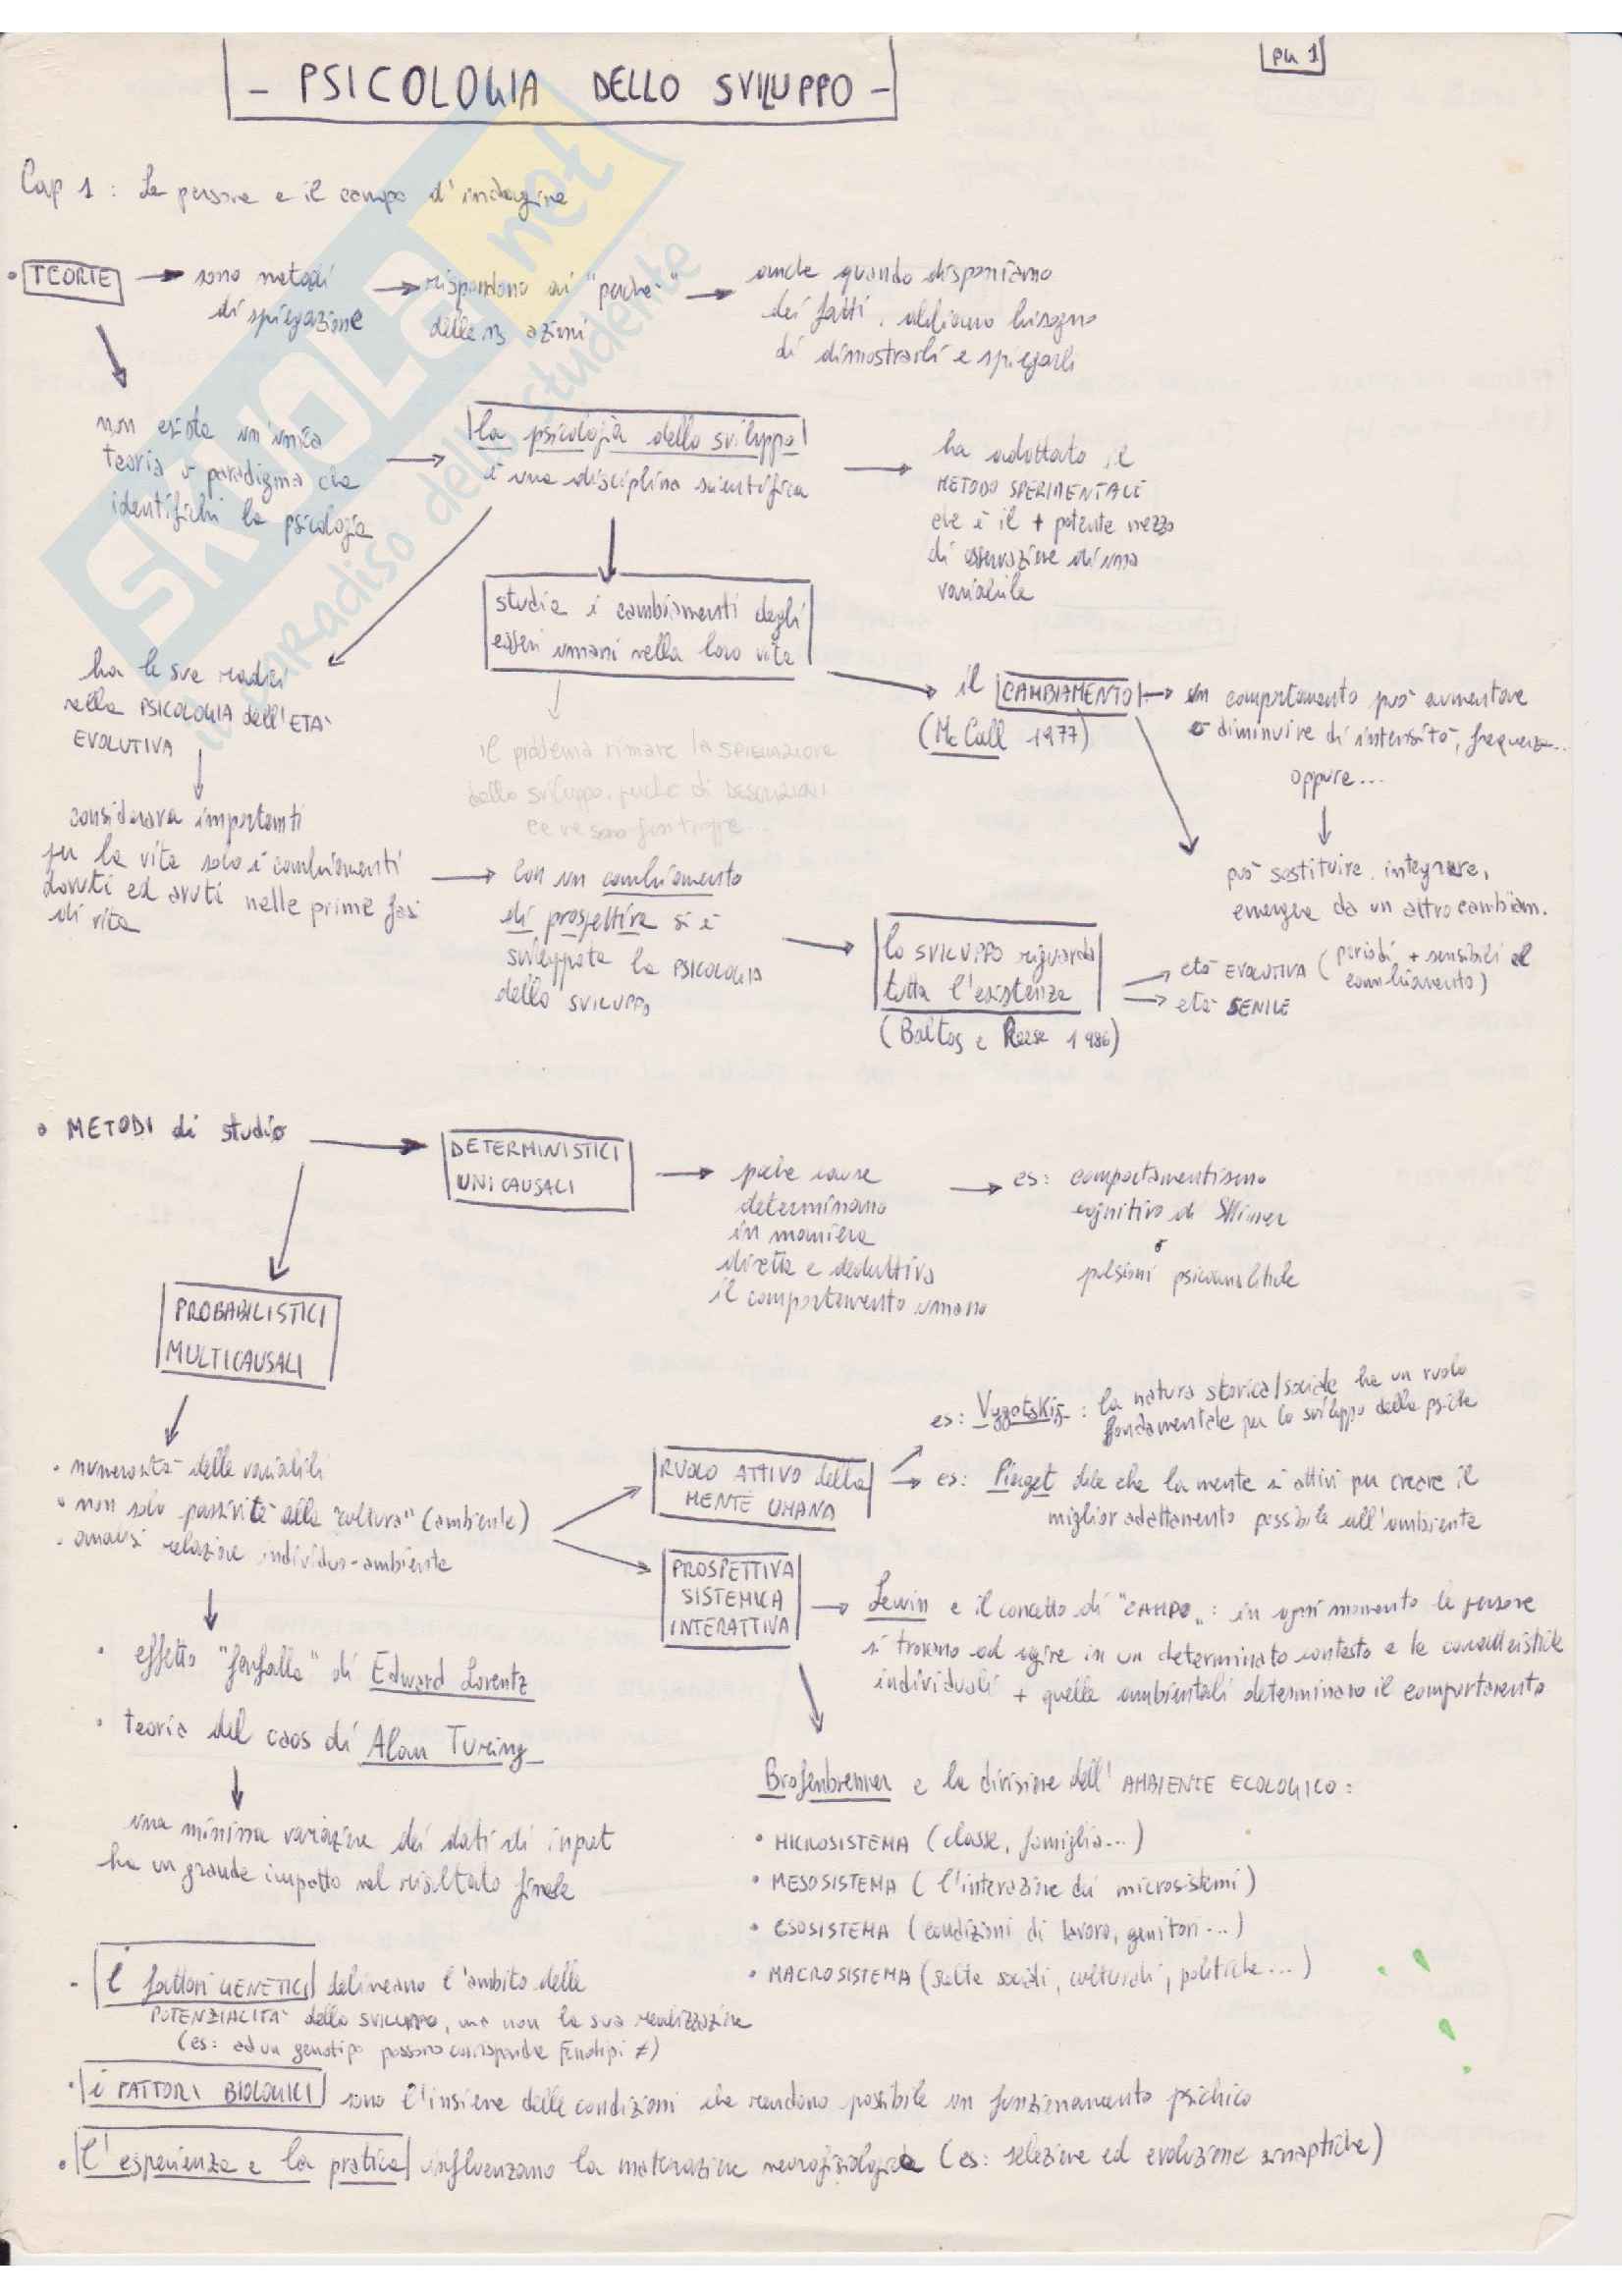 pu 1
- PSICOLOGIA DELLO SVILUPPO -
Cap 1 : La persona e il campo d'indagine
• TEORIE
sono metodi
di spiegazione
rispondono ai "perché"
delle ns azioni
anche quando disponiamo
dei fatti, abbiamo bisogno
di dimostrarli e spiegarli
non esiste un'unica
teoria o paradigma che
identifichi la psicologia
la psicologia dello sviluppo
è una disciplina scientifica
ha adottato il
METODO SPERIMENTALE
che è il + potente mezzo
di osservazione di una
variabile
studia i cambiamenti degli
esseri umani nella loro vita
ha le sue radici
nella PSICOLOGIA dell'ETA'
EVOLUTIVA
il CAMBIAMENTO
(Mc Call 1977)
un comportamento può aumentare
o diminuire di intensità, frequenza..
oppure...
il problema rimane la SPIEGAZIONE
dello sviluppo, perché di DESCRIZIONI
ce ne sono fin troppe...
considerava importanti
per la vita solo i cambiamenti
dovuti ed avuti nelle prime fasi
di vita
può sostituire, integrare,
emergere da un altro cambiam.
con un cambiamento
di prospettiva si è
sviluppata la PSICOLOGIA
dello SVILUPPO
lo SVILUPPO riguarda
tutta l'esistenza
(Baltes e Reese 1986)
età EVOLUTIVA (periodi + sensibili al
cambiamento)
età SENILE
• METODI di studio
DETERMINISTICI
UNICAUSALI
poche cause
determinano
in maniera
diretta e deduttiva
il comportamento umano
es: comportamentismo
cognitivo di Skinner
o
pulsioni psicoanalitiche
PROBABILISTICI
MULTICAUSALI
• numerosità delle variabili
• non solo passività alla "cultura" (ambiente)
• analisi relazione individuo-ambiente
RUOLO ATTIVO della
MENTE UMANA
es: Vygotskij : la natura storica/sociale ha un ruolo
fondamentale per lo sviluppo della psiche
es: Piaget dice che la mente si attivi per creare il
miglior adattamento possibile all'ambiente
PROSPETTIVA
SISTEMICA
INTERATTIVA
Lewin e il concetto di "CAMPO" : in ogni momento le persone
si trovano ad agire in un determinato contesto e le caratteristiche
individuali + quelle ambientali determinano il comportamento
• effetto "farfalla" di Edward Lorentz
• teoria del caos di Alan Turing
una minima variazione dei dati di input
ha un grande impatto nel risultato finale
Brofenbrenner e la divisione dell'AMBIENTE ECOLOGICO :
• MICROSISTEMA (classe, famiglia...)
• MESOSISTEMA (l'interazione dei microsistemi)
• ESOSISTEMA (condizioni di lavoro, genitori...)
• MACROSISTEMA (scelte sociali, culturali, politiche...)
- I fattori GENETICI delineano l'ambito delle
POTENZIALITA' dello SVILUPPO, ma non la sua realizzazione
(es: ad un genotipo possono corrispondere Fenotipi ≠)
• i FATTORI BIOLOGICI sono l'insieme delle condizioni che rendono possibile un funzionamento psichico
• l'esperienza e la pratica influenzano la maturazione neurofisiologica (es: selezione ed evoluzione sinaptiche)
SKUOLA.net
il paradiso dello studente